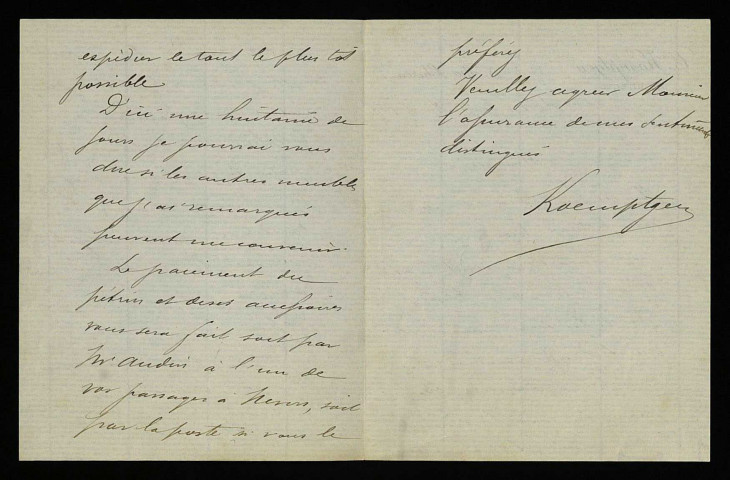 expédier le tout le plus tôt
possible
D'ici une huitaine de
jours je pourrai vous
dire si les autres meubles
que j'ai remarqués
peuvent me convenir.
Le paiement du
pétrin et de ses
vous sera fait soit par
Mr Audin à l'un de
vos passages à Nevers, soit
par la poste si vous le
préférez
Veuillez agréer Monsieur
l'assurance de mes sentiments
distingués
Kaemptgen